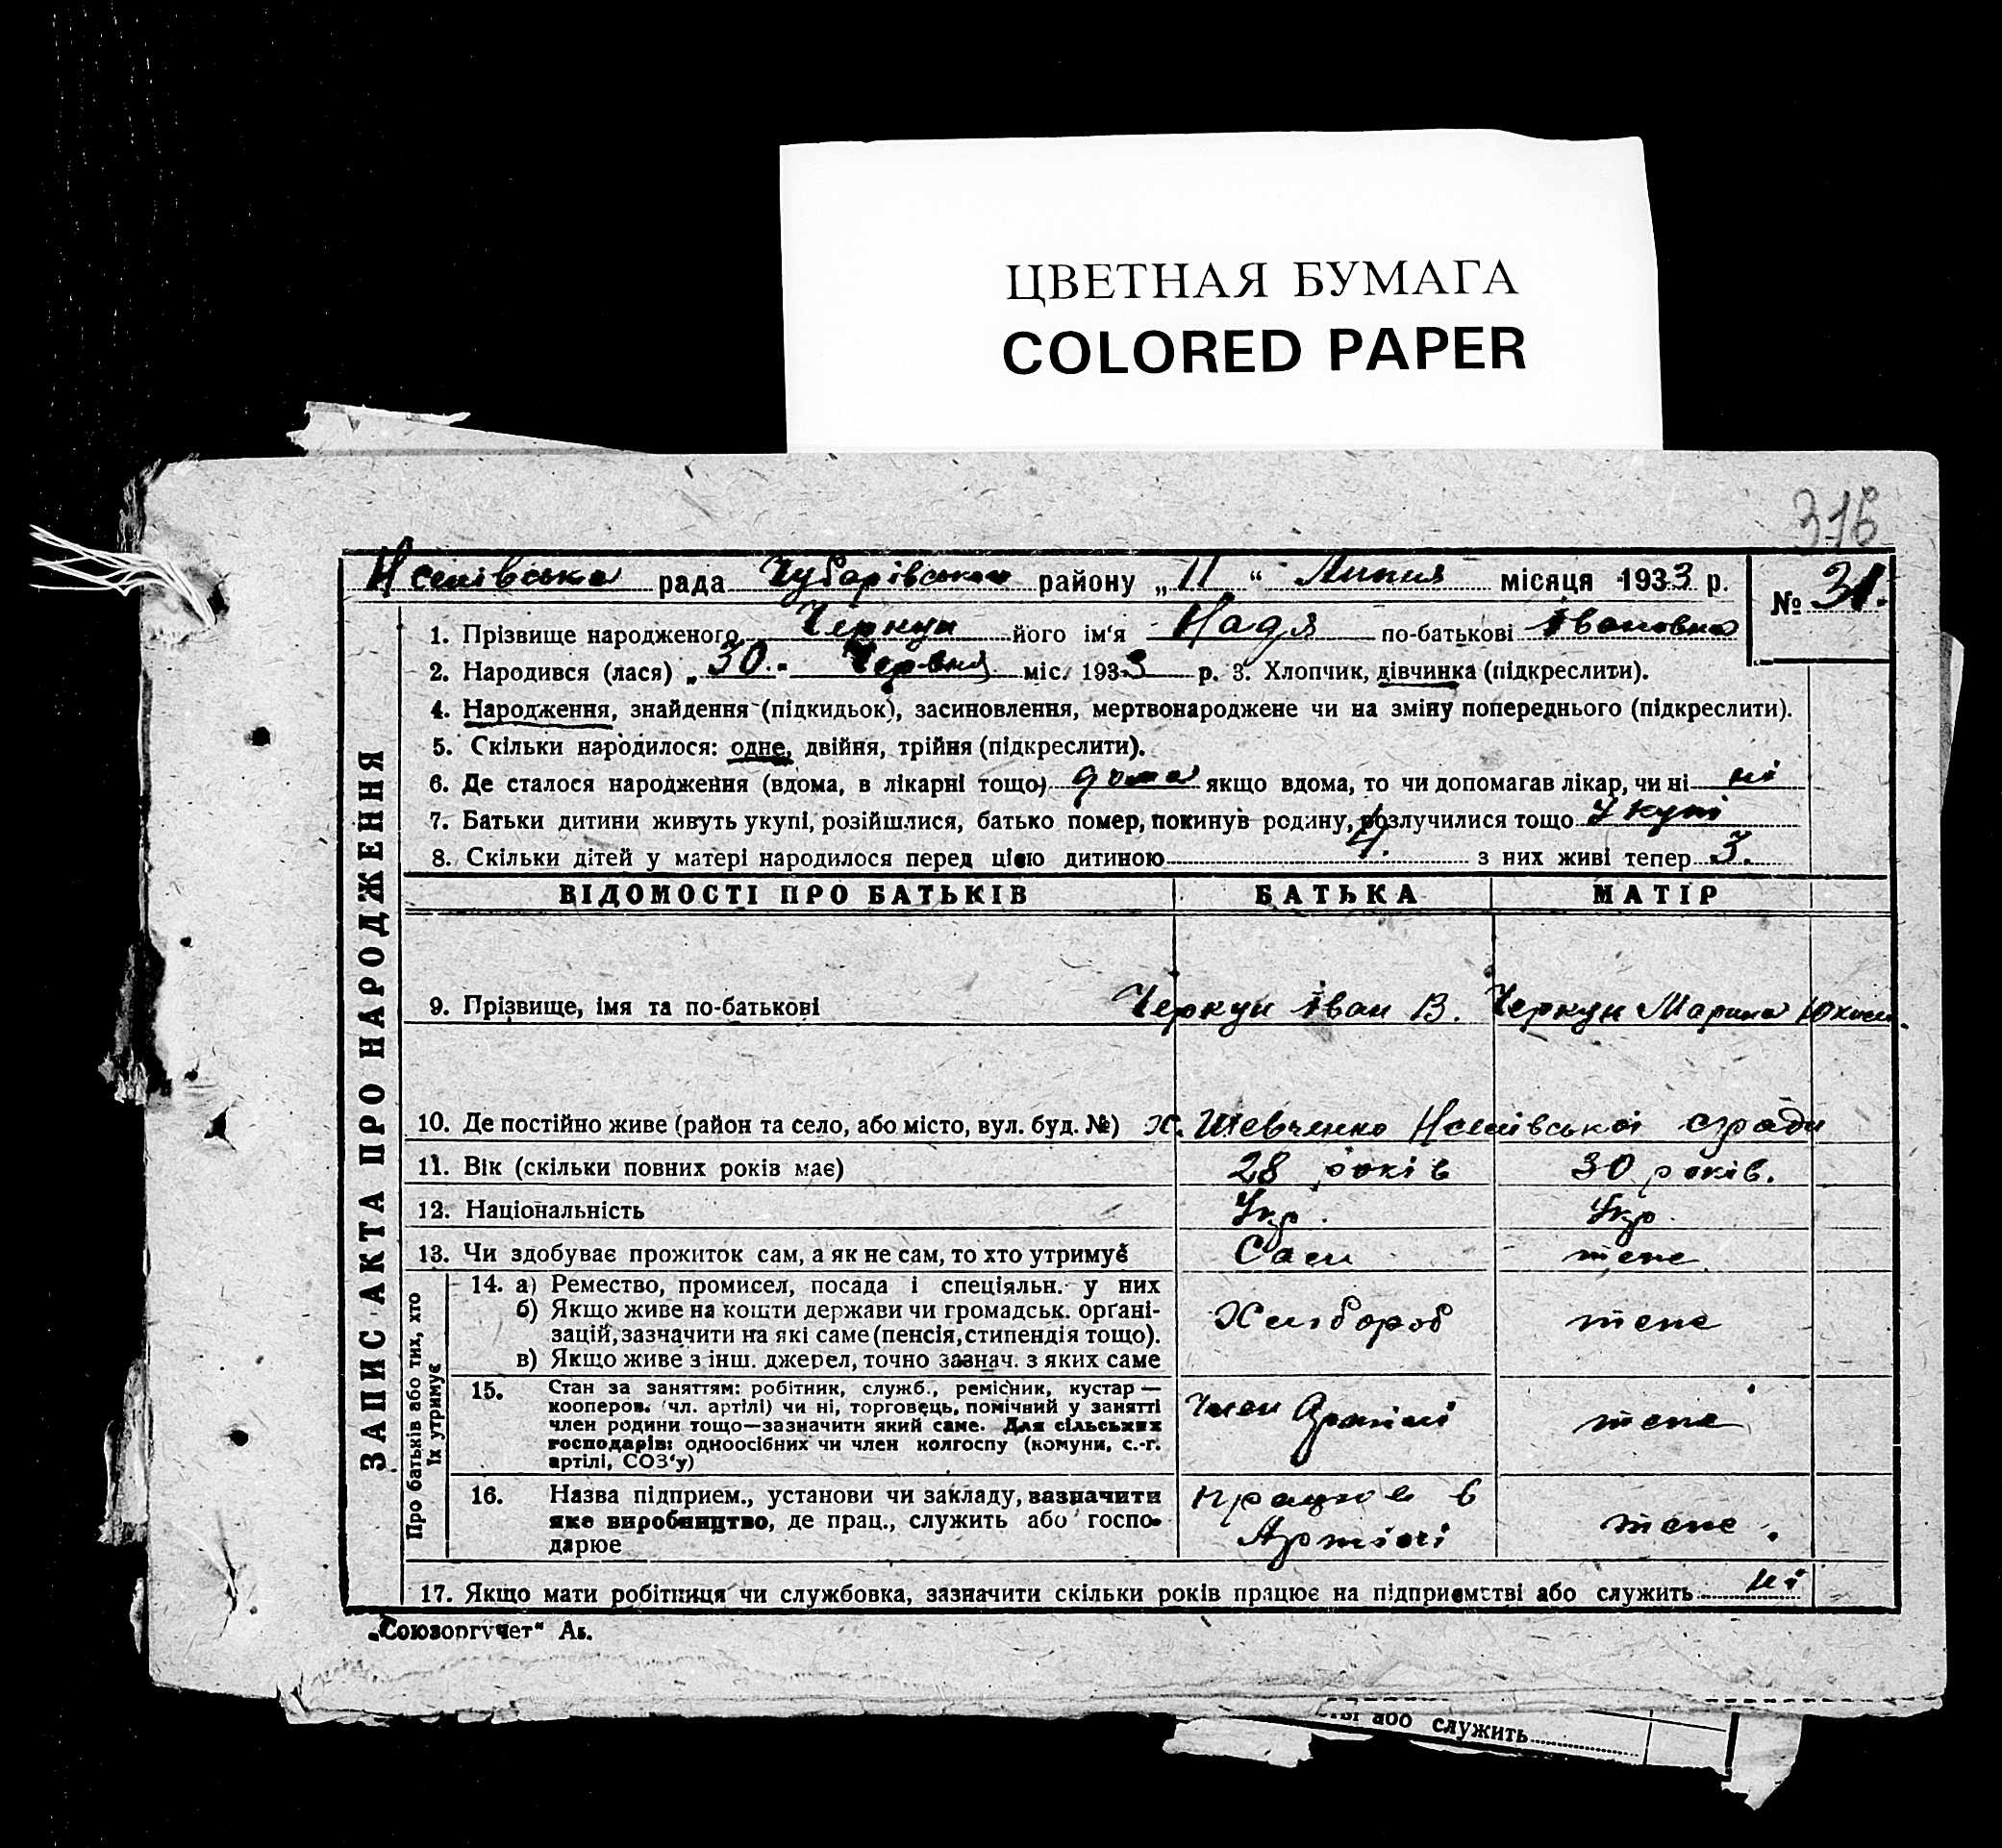 ЦВЕТНАЯ БУМАГА
COLORED PAPER
316
рада Чубарівського району „11“ Липня місяця 1933 р.
№ 31.
ЗАПИС АКТА ПРО НАРОДЖЕННЯ
1. Прізвище народженого Черкун його ім‘я Надя по-батькові Івановна
2. Народився (лася) „30„ Червня міс. 1933 р. 3. Хлопчик, дівчинка (підкреслити).
4. Народження, знайдення (підкидьок), засиновлення, мертвонароджене чи на зміну попереднього (підкреслити).
5. Скільки народилося: одне, двійня, трійня (підкреслити).
6. Де сталося народження (вдома, в лікарні тощо) дома якщо вдома, то чи допомагав лікар, чи ні ні
7. Батьки дитини живуть укупі, розійшлися, батько помер, покинув родину, розлучилися тощо Укупі
8. Скільки дітей у матері народилося перед цією дитиною 4. з них живі тепер 3.
ВІДОМОСТІ ПРО БАТЬКІВ БАТЬКА МАТІР
9. Прізвище, імя та по-батькові Черкун Іван В. Черкун Марина Юхим.
10. Де постійно живе (район та село, або місто, вул. буд. №) Х. Шевченко сради
11. Вік (скільки повних років має) 28 років 30 років.
12. Національність Укр. Укр.
13. Чи здобуває прожиток сам, а як не сам, то хто утримує Сам теж
Про батьків або тих, хто
їх утримує
14. а) Ремество, промисел, посада і спеціяльн. у них
б) Якщо живе на кошти держави чи громадськ. орґані-
зацій, зазначити на які саме (пенсія, стипендія тощо).
в) Якщо живе з інш. джерел, точно зазнач. з яких саме
Хлібороб теж
15. Стан за заняттям: робітник, служб., ремісник, кустар —
кооперов. (чл. артілі) чи ні, торговець, помічний у занятті
член родини тощо—зазначити який саме. Для сільських
господарів: одноосібних чи член колгоспу (комуни, с.-г.
артілі, СОЗ‘у)
Член Артілі теж
16. Назва підприєм., установи чи закладу, вазначити
яке виробництво, де прац., служить або госпо-
дарює
працює в
Артілі теж.
17. Якщо мати робітниця чи службовка, зазначити скільки років працює на підприємстві або служить ні
„Союзоргучет“
або служить